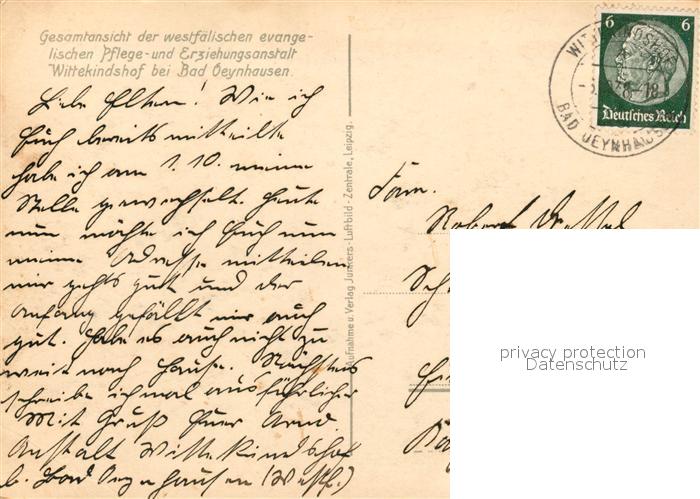 Gesamtansicht der westfälischen evange-
lischen Pflege- und Erziehungsanstalt
Wittekindshof bei Bad Oeynhausen.
Liebe Eltern! Wie ich
Euch bereits mitteilte
habe ich am 1.10. meine
Stelle gewechselt. Heute
nun möchte ich Euch nun
meine Adresse mitteilen
mir gehts gut und der
Anfang gefällt mir auch
gut. Habe es auch nicht zu
weit nach Hause. Nächstens
schreibe ich mal ausführlicher
Mit Gruß Euer Arnd.
Anstalt Wittekindshof
b. Bad Oeynhausen (Westf.)
Aufnahme u. Verlag Junkers-Luftbild-Zentrale, Leipzig.
6 6
Deutsches Reich
WITTEKINDSHOF
BAD OEYNHAUSEN
Fam.
Robert
privacy protection
Datenschutz